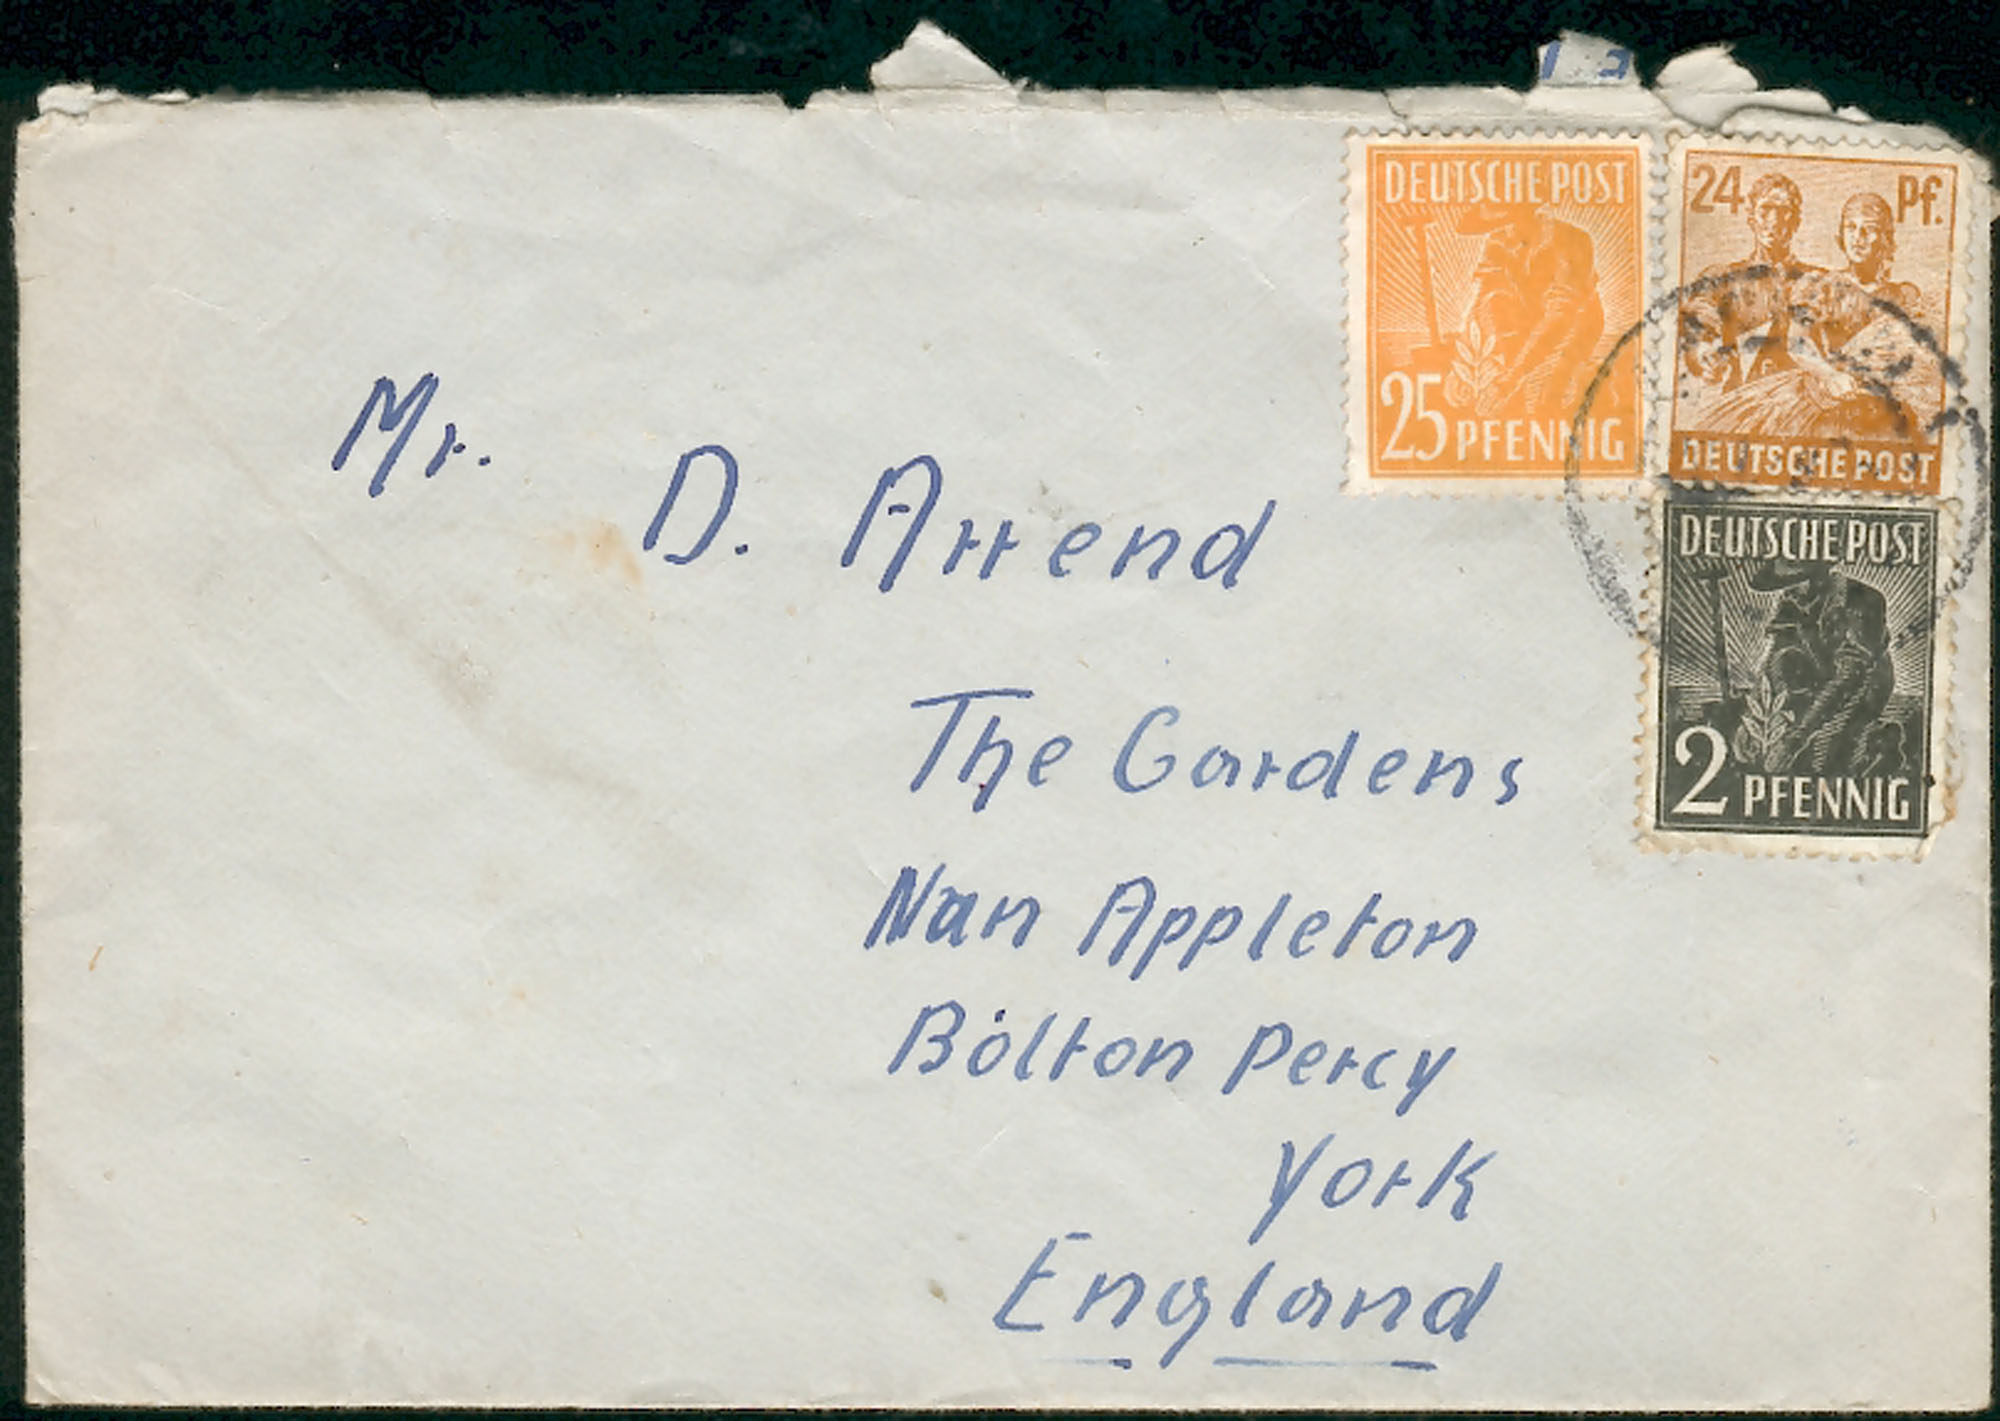 DEUTSCHE POST
25 PFENNIG
24 Pf.
DEUTSCHE POST
DEUTSCHE POST
2 PFENNIG
Mr.
D. Arrend
The Gardens
Nan Appleton
Bolton Percy
York
England